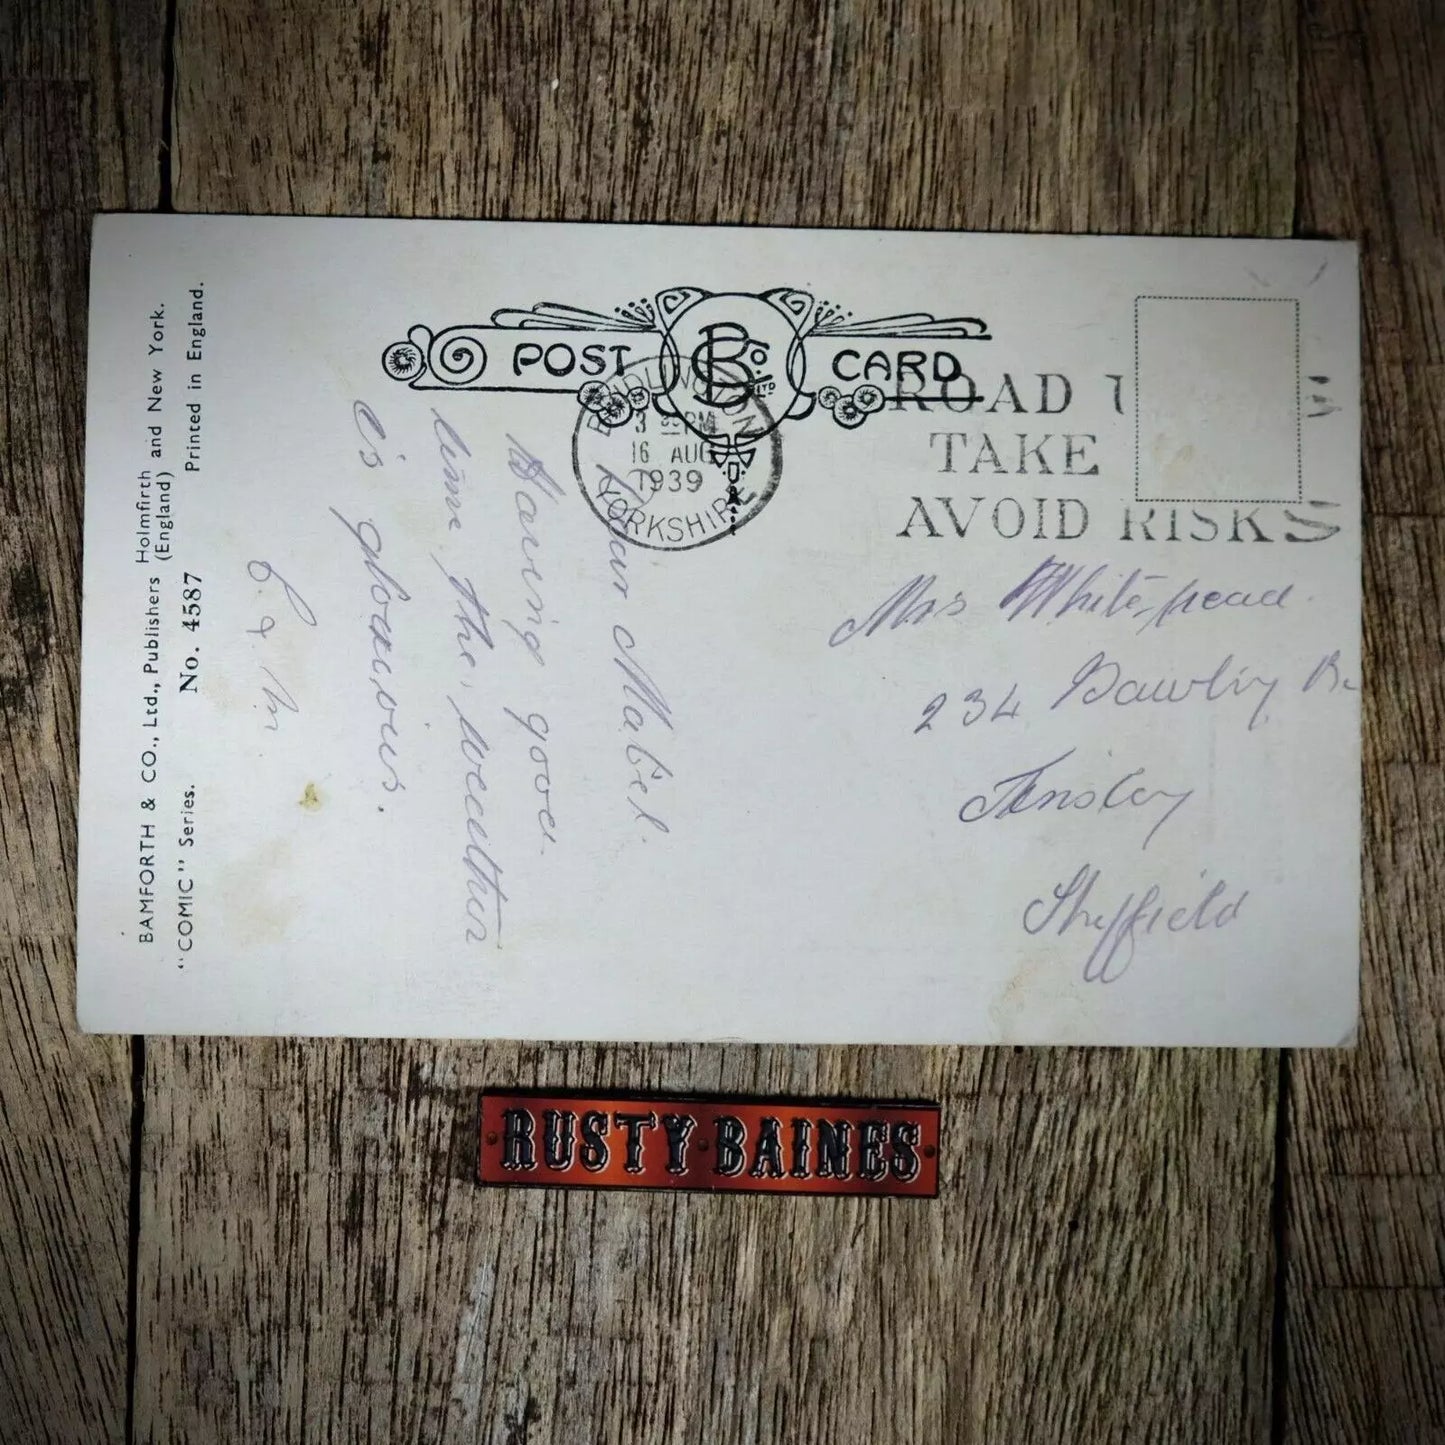 BAMFORTH & CO., Ltd., Publishers Holmfirth and New York.
(England)
"COMIC" Series. No. 4587 Printed in England.
POST CARD
B Co. LTD
BRIDLINGTON
3 PM
16 AUG
1939
YORKSHIRE
ROAD U
TAKE
AVOID RISKS
Mabel.
Having good
time, the weather
is glorious.
Mrs Whitehead.
234 Bawtry R
Tinsley
Sheffield
RUSTY BAINES